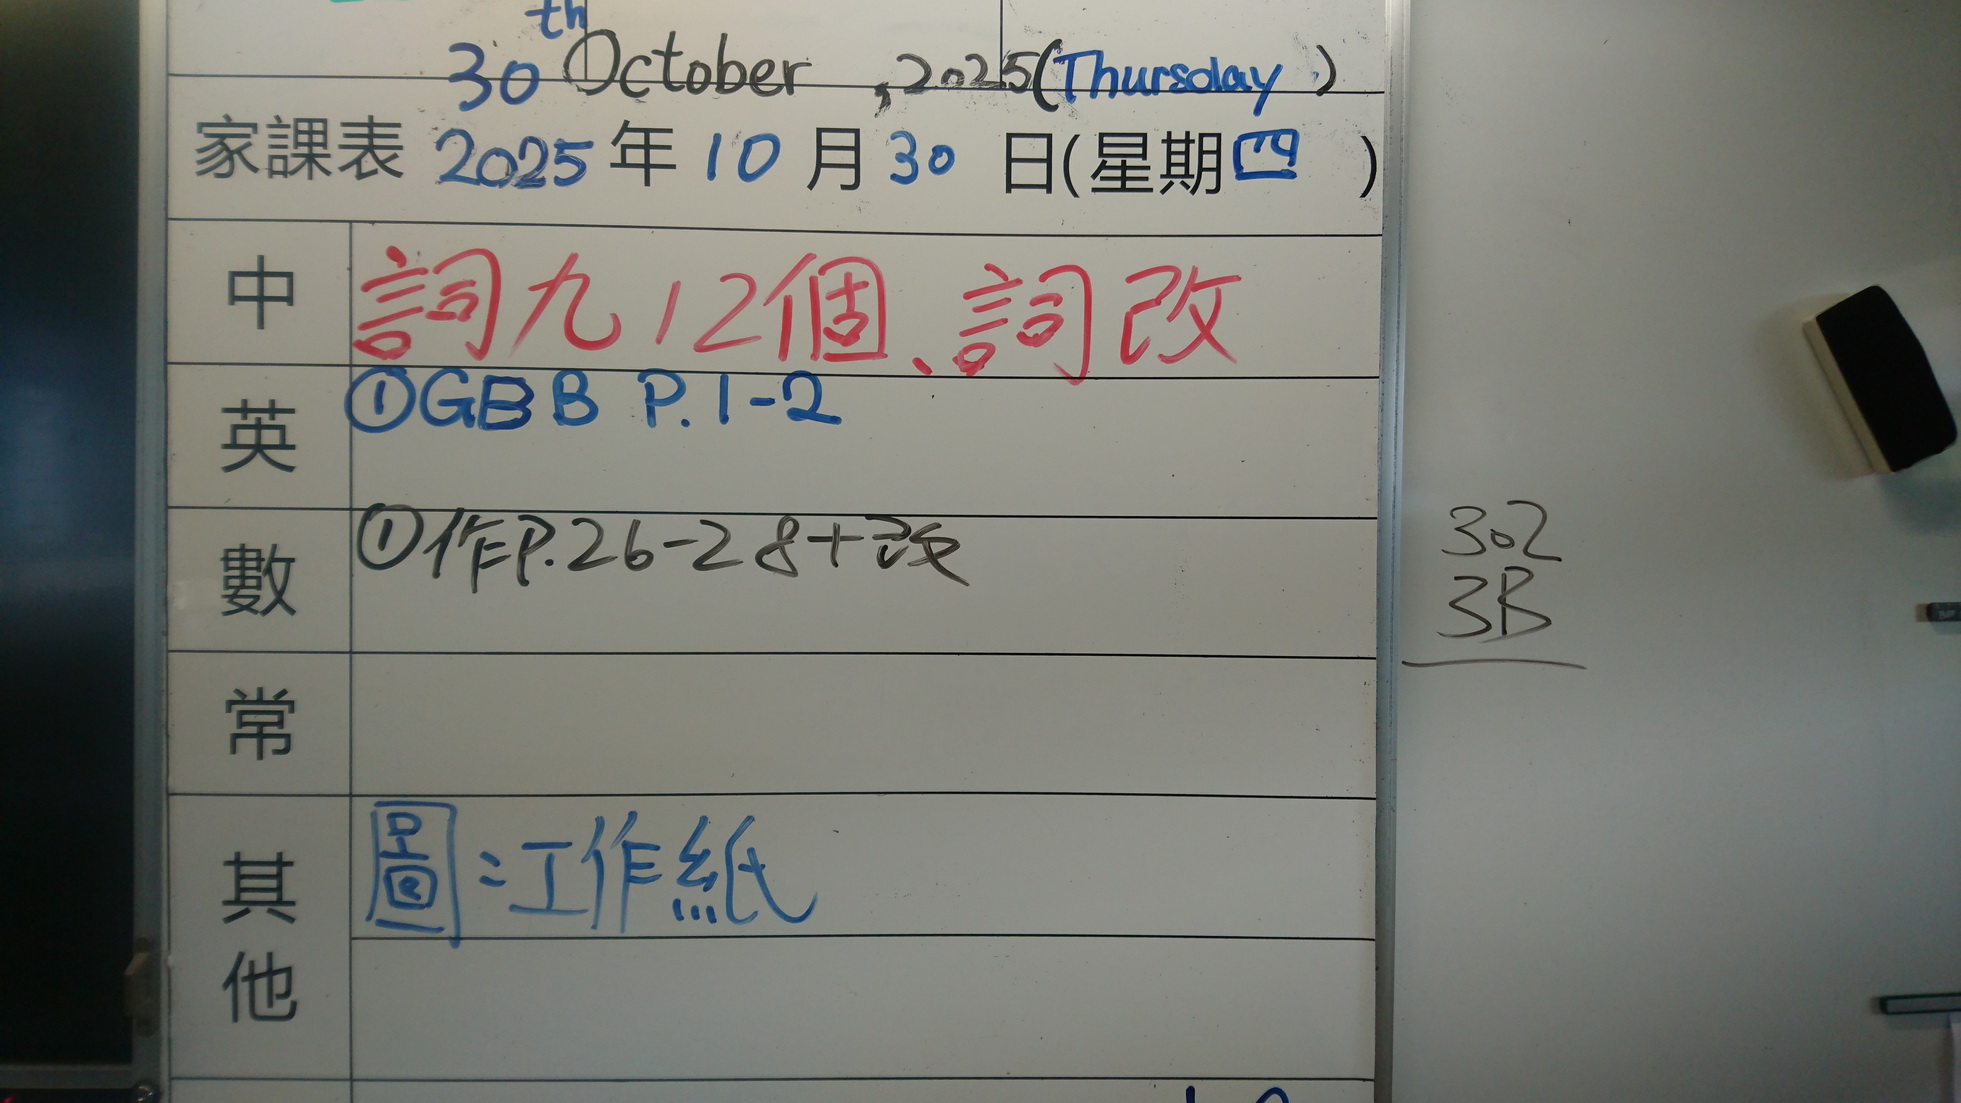 30th October , 2025 (Thursday)
家課表 2025 年 10 月 30 日(星期四 )
中 詞九12個、詞改
英 ①GBB P.1-2
數 ①作P.26-28+改
302
3B
常
圖:工作紙
其他